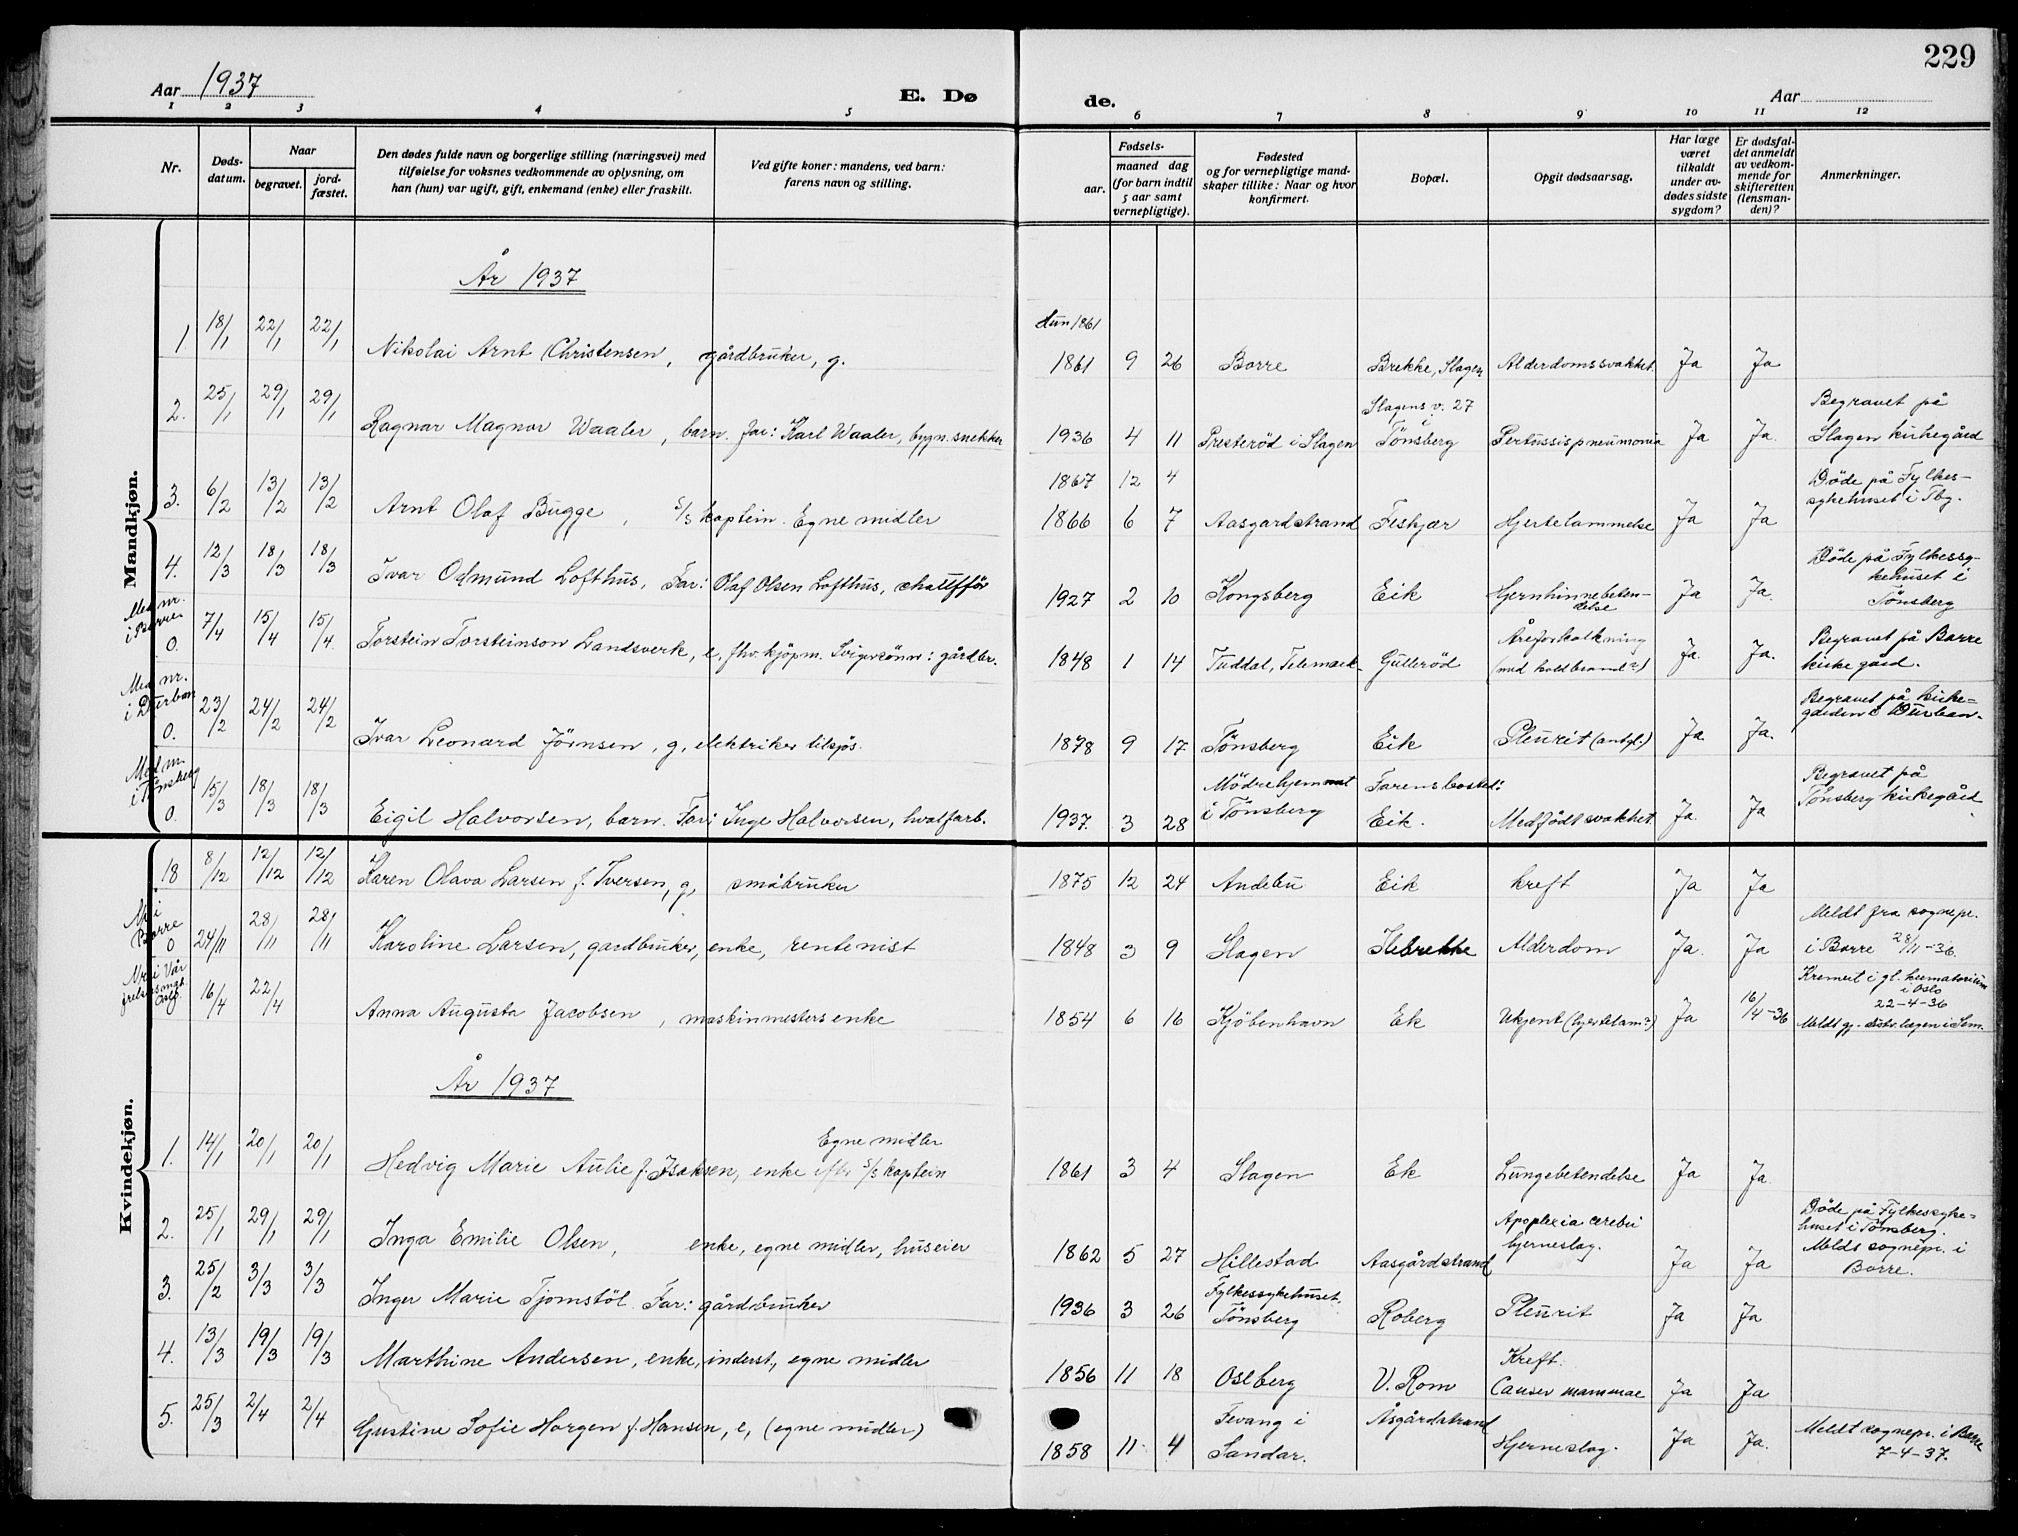 229
Aar 1937
E. Dø de.
Aar
1 2 3 4 5 6 7 8 9 10 11 12
Nr.
Døds-
datum.
Naar
begravet.
jord-
fæstet.
Den dødes fulde navn og borgerlige stilling (næringsvei) med
tilføielse for voksnes vedkommende av oplysning, om
han (hun) var ugift, gift, enkemand (enke) eller fraskilt.
Ved gifte koner: mandens, ved barn:
farens navn og stilling.
Fødsels-
aar.
maaned dag
(for barn indtil
5 aar samt
vernepligtige).
Fødested
og for vernepligtige mand-
skaper tillike: Naar og hvor
konfirmert.
Bopæl.
Opgit dødsaarsag.
Har læge
været
tilkaldt
under av-
dødes sidste
sygdom?
Er dødsfal-
det anmeldt
av vedkom-
mende for
skifteretten
(lensman-
den)?
Anmerkninger.
Mandkjøn.
År 1937
Hun 1861
1. 18/1 22/1 22/1 Nikolai Arnt Christensen, gårdbruker, g. 1861 9 26 Borre Brekke, Slagen Alderdomssvakhet. Ja Ja
Slagens v. 27
i
Begravet på
2. 25/1 29/1 29/1 Ragnar Magnor Waaler, barn. far: Karl Waaler, bygn.snekker 1936 4 11 Presterød i Slagen Tönsberg Pertussispneumonia Ja Ja. Slagen kirkegård
1867 12 4
Döde på Fylkes-
sykehuset i Tbg.
3. 6/2 13/2 13/2 Arnt Olaf Bugge, S/S kaptein. Egne midler 1866 6 7 Aasgardstrand Feskjær Hjertelammelse Ja Ja
Döde på Fylkessy-
kehuset i
Tönsberg
4. 12/3 18/3 18/3 Ivar Odmund Lofthus, Far: Olaf Olsen Lofthus, chaufför 1927 2 10 Kongsberg Eik Hjernhinnebeten-
delse Ja Ja.
Med nr.
i Borre
Åreforkalkning
Begravet på Borre
0. 7/4 15/4 15/4 Torstein Torsteinson Landsverk, e, fhv. kjöpm. Svigersönn: gårdbr. 1848 1 14 Tuddal, Telemark Gulleröd (med koldbrand?) Ja. Ja. kirkegård.
Med nr.
i Durban
Begravet på kirke-
gården i Durban.
0. 23/2 24/2 24/2 Ivar Leonard Jörnsen, g, elektriker tilsjös. 1878 9 17 Tönsberg Eik Pleurit (antgl.) Ja. Ja.
Med nr.
i Tönsberg
Mödrehjemmet Farens bosted:
Begravet på
Tönsberg kirkegård
0. 15/3 18/3 18/3 Eigil Halvorsen, barn. Far: Inge Halvorsen, hvalfarb. 1937. 3 28 i Tönsberg Eik. Medfödt svakhet Ja. Ja
Kvindekjøn.
18 8/12 12/12 12/12 Karen Olava Larsen f. Iversen, g, småbruker 1875 12 24 Andebu Eik kreft Ja Ja
Nr i
Borre
Meldt fra sognepr.
0 24/11 28/11 28/11 Karoline Larsen, gardbruker, enke, rentenist 1848 3 9 Slagen Ilebrekke Alderdom Ja. Ja i Borre 28/11-36.
Nr i Vår
frelsers mgt.
Oslo.
Kremert i gl. krematorium
i Oslo
22-4-36
16/4 22/4 Anna Augusta Jacobsen, maskinmesters enke 1854 6 16 Kjöbenhavn Ek Ukjent (hjertelam?) Ja 16/4-36 Meldt gj. distr.lægen i Sem.
År 1937
Egne midler
1. 14/1 20/1 20/1 Hedvig Marie Aulie f. Isaksen, enke efter S/S kaptein 1861 3 4 Slagen Ek Lungebetendelse Ja Ja.
Apoplexia cerebri
Döde på Fylkessyke-
huset i Tönsberg.
2. 25/1 29/1 29/1 Inga Emilie Olsen, enke, egne midler, huseier 1862 5 27 Hillestad Aasgårdstrand hjerneslag. Ja Ja Meldt sognepr. i
Borre.
Fylkessykehuset
3. 25/2 3/3 3/3 Inger Marie Tjomstöl. Far: gårdbruker 1936 3 26 Tönsberg Roberg Pleurit Ja Ja
Kreft.
4. 13/3 19/3 19/3 Marthine Andersen, enke, inderst, egne midler 1856 11 18 Oslberg V. Rom Canser mammae Ja Ja
Fevang i Åsgårdstrand
Meldt sognepr. i Borre
7-4-37.
5. 25/3 2/4 2/4 Gustine Sofie Horgen f. Hansen, e, (egne midler) 1858 11. 4 Sandar. Hjerneslag. Ja Ja.